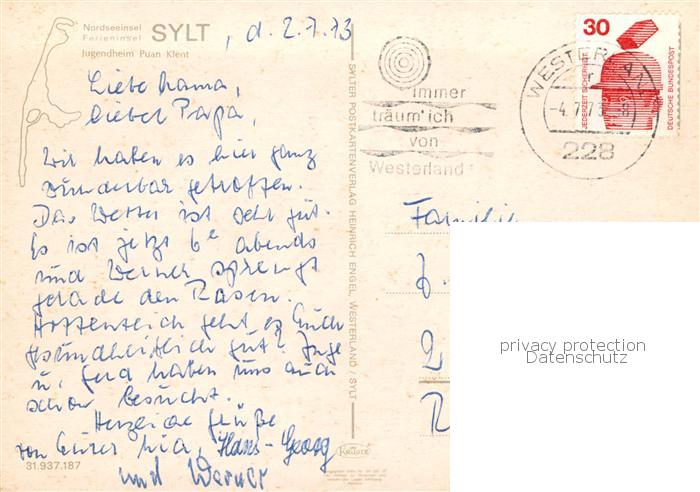 Nordseeinsel
Ferieninsel SYLT, d. 2.7.73
Jugendheim Puan Klent
Liebe Mama,
lieber Papa,
Wir haben es hier ganz
wunderbar getroffen.
Das Wetter ist sehr gut.
Es ist jetzt 6 abends
und Werner sprengt
gerade den Rasen.
Hoffentlich geht es Euch
gesundheitlich gut? Inge
u. Gerd haben uns auch
schon besucht.
Herzliche Grüße
von Eurer Mia, Hans-Georg
und Werner
31.937.187
SYLTER POSTKARTENVERLAG HEINRICH ENGEL, WESTERLAND / SYLT
KRÜGER
immer
träum' ich
von
Westerland
WESTERLAND
-4.7.73-8
228
30
JEDERZEIT SICHERHEIT
DEUTSCHE BUNDESPOST
Familie
privacy protection
Datenschutz